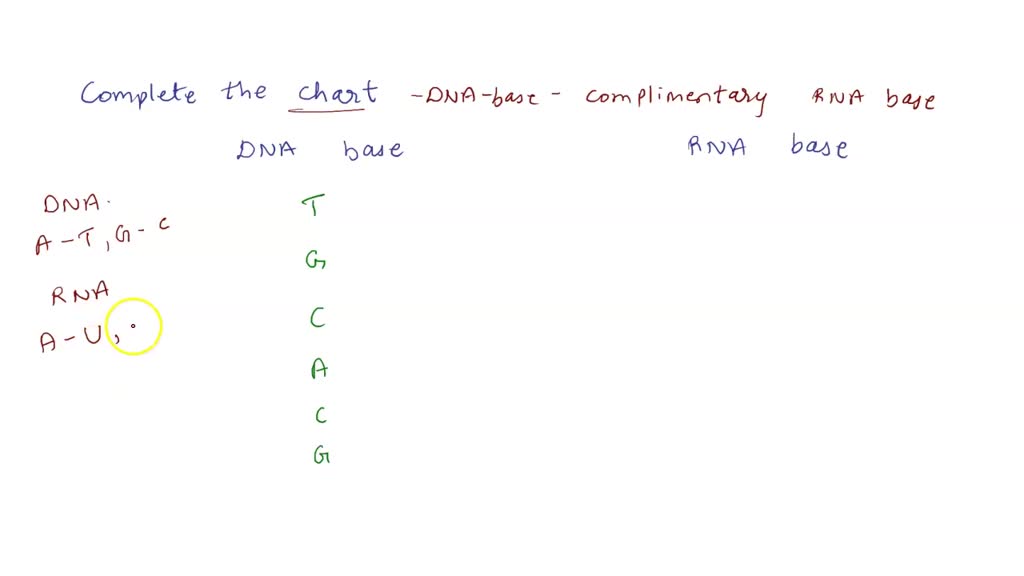 Complete the chart -DNA-base- complimentary RNA base
DNA base RNA base
DNA.
A-T, G-C
RNA
A-U,
T
G
C
A
C
G